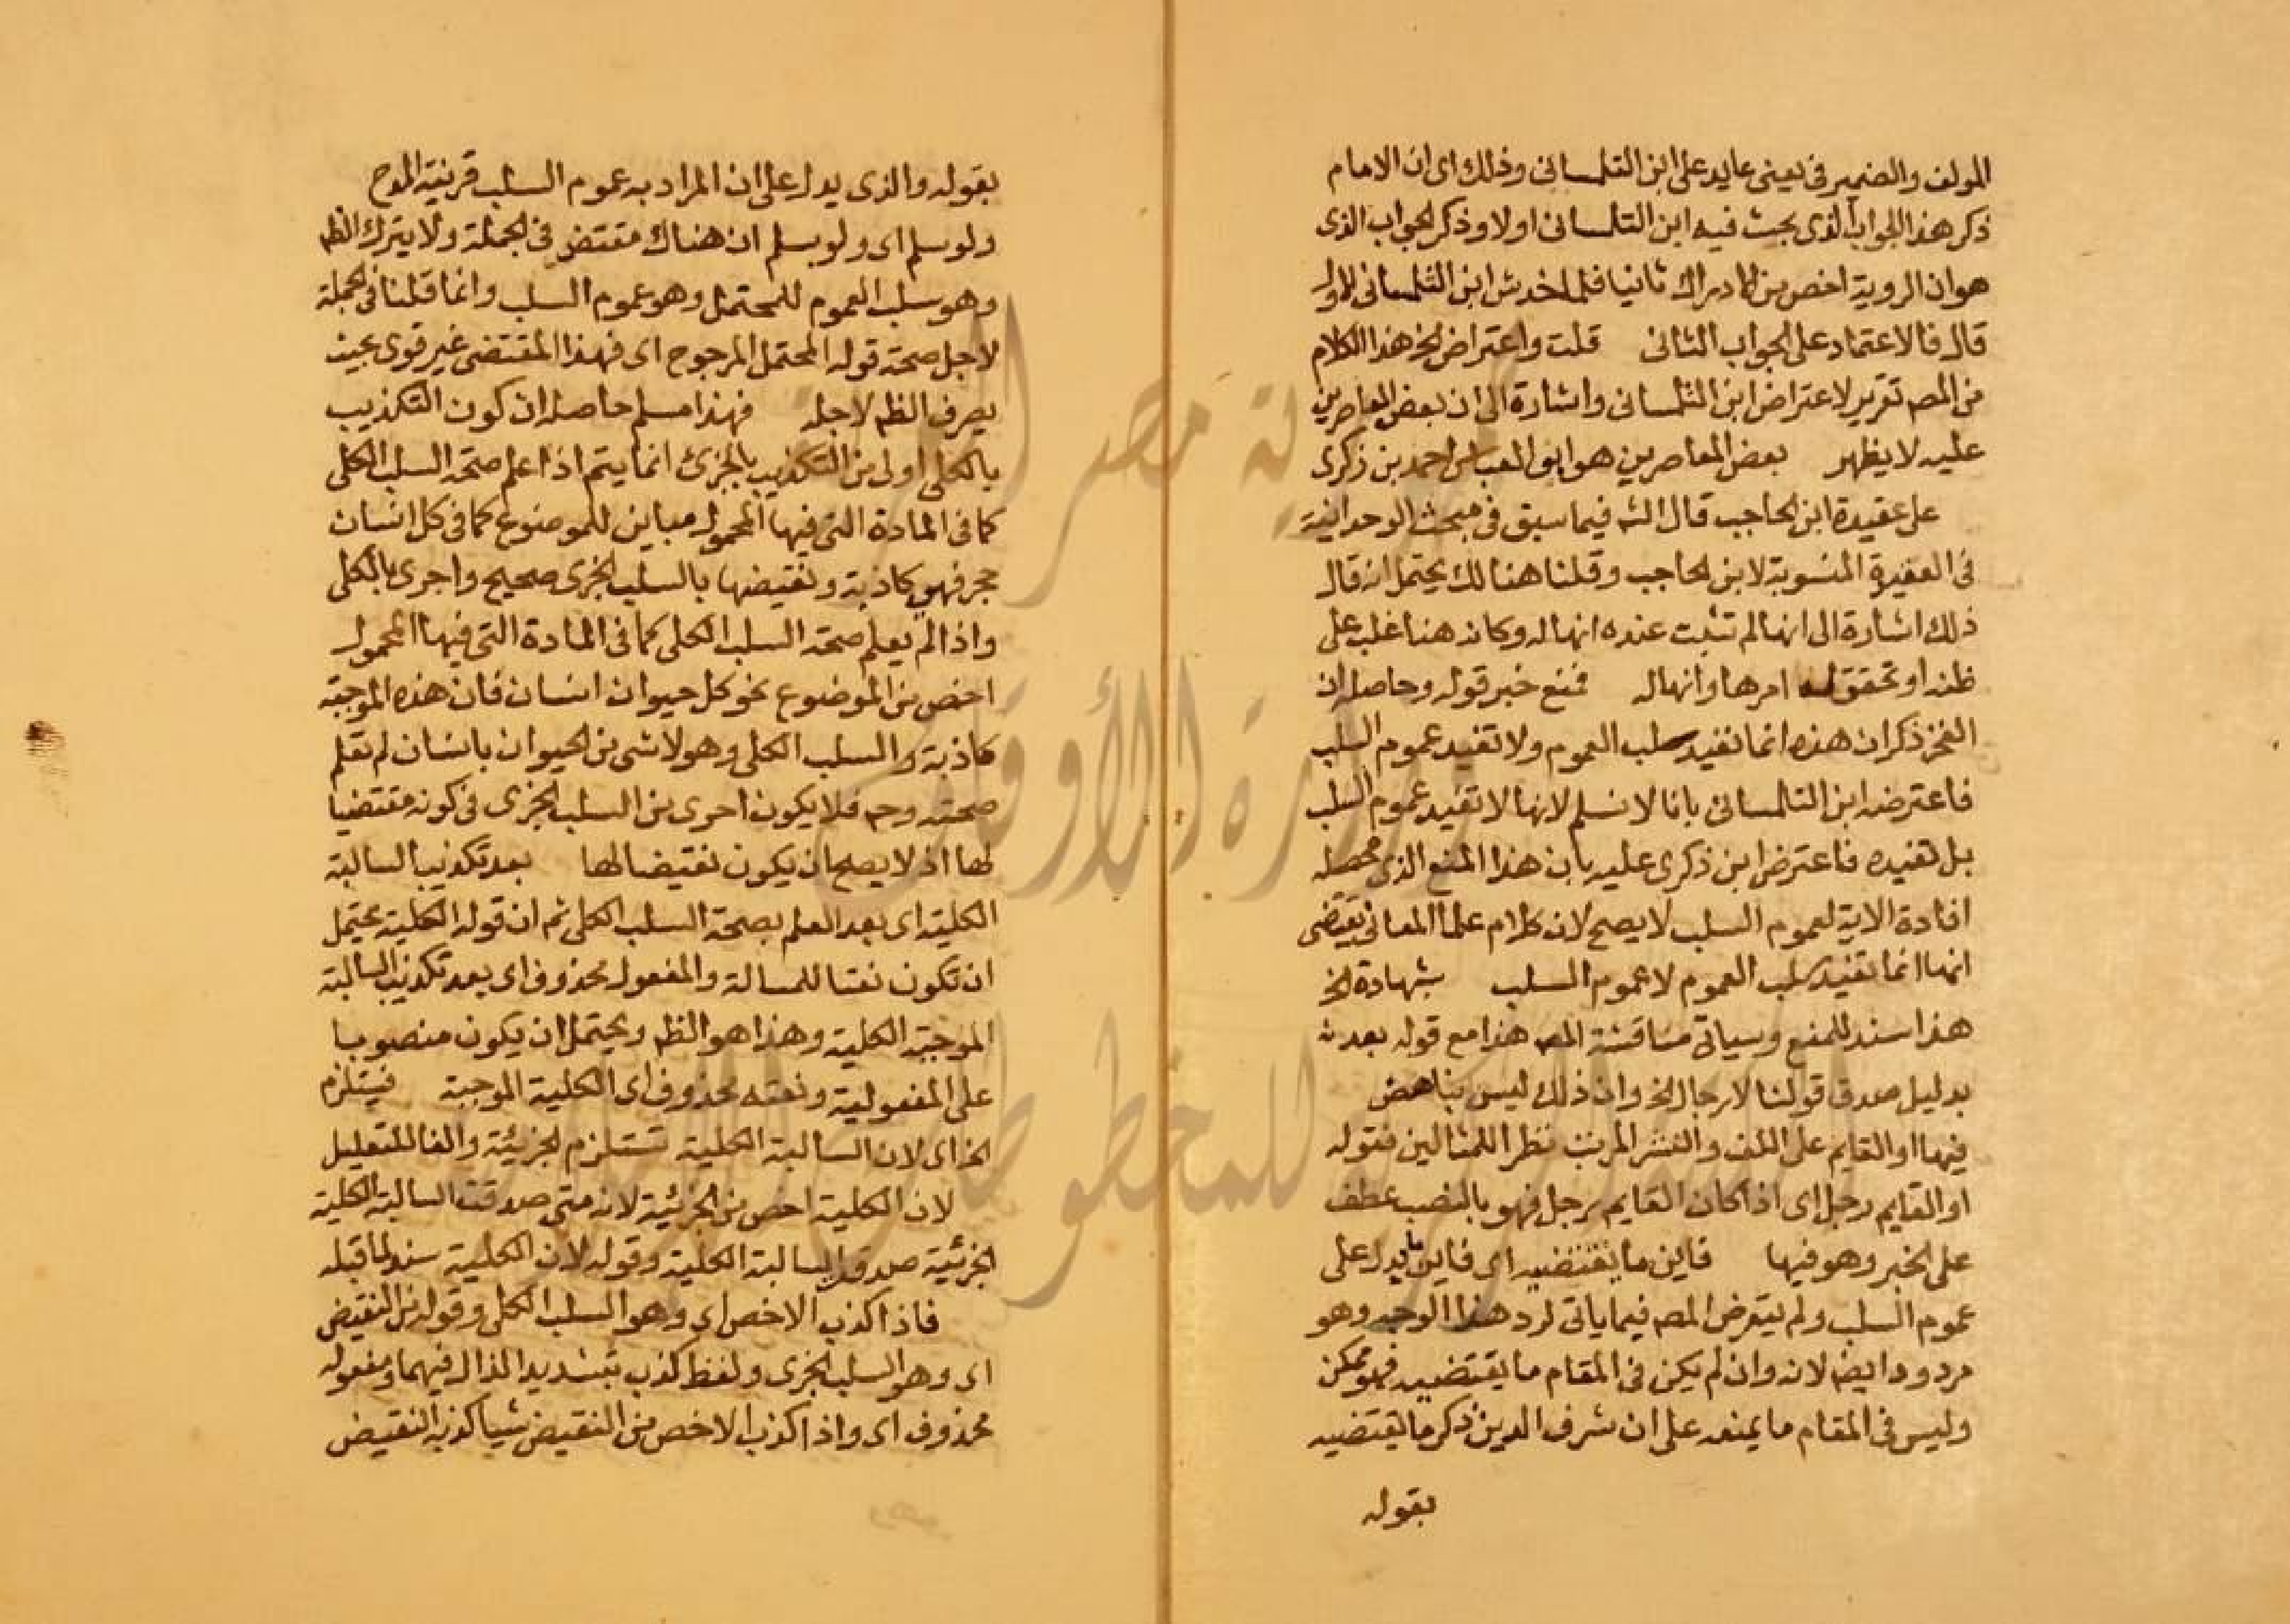 المولف والضمير في يعني عايد على ابن التلمساني وذلك اى ان الامام
ذكر هذا الجواب الذى بحث فيه ابن التلمسانى اولا وذكر الجواب الذى
هو ان الروية اخص من الادراك ثانيا فلما خدش ابن التلمسانى الاول
قال فالاعتماد على الجواب الثانى قلت واعتراض الخ هذا الكلام
من المص تقرير لاعتراض ابن التلمسانى واشارة الى ان بعض المعاصرين
عليه لا يظهر بعض المعاصرين هو ابو العباس احمد بن زكرى
على عقيدة ابن الحاجب قال الشه فيما سبق فى مبحث الوحدانية
فى العقيدة المنسوبة لابن الحاجب وقلنا هنالك يحتمل انه قال
ذلك اشارة الى انها لم تثبت عنده انها له وكانه هنا غلب على
ظنه او تحقق له امرها وانها له فمنع خبر قوله وحاصله ان
الفخر ذكر ان هذه انما تفيد سلب العموم ولا تفيد عموم السلب
فاعترضه ابن التلمسانى بانا لا نسلم لانها لا تفيد عموم السلب
بل تفيده فاعترض ابن ذكرى عليه بان هذا المنع الذى محصله
افادة الاية لعموم السلب لا يصح لان كلام علما المعانى يقتضى
انها انما تفيد سلب العموم لا عموم السلب بشهادة الخ
هذا سند للمنع وسياتى مناقشة المص هذا مع قوله بعد
بدليل صدق قولنا لا رجال الخ وان ذلك ليس بناهض
فيها او القايم على اللف والنشر المرتب نظرا للمثالين فقوله
او القايم رجل اى اذا كان القايم رجل فهو بالنصب عطف
على الخبر وهو فيها فاين ما يقتضيه اى فاين ما يدل على
عموم السلب ولم يتعرض المص فيما ياتى لرد هذا الوجه وهو
مردود ايضا لانه وان لم يكن فى المقام ما يقتضيه فهو ممكن
وليس فى المقام ما يمنعه على ان شرف الدين ذكر ما يقتضيه
بقوله
بقوله والذى يدل على ان المراد به عموم السلب قرينة المدح
ولو سلم اى ولو سلم ان هناك مقتض فى الجملة ولا يترك الظه
وهو سلب العموم للمحتمل وهو عموم السلب وانما قلنا فى الجملة
لاجل صحة قوله المحتمل المرجوح اى فهذا المقتضى غير قوى بحيث
يصرف الظه لاجله فهذا مسلم حاصله ان كون التكذيب
بالكلى اولى من التكذيب بالجزئ انما يتم اذا علم صحة السلب الكلى
كما فى المادة التى فيها المحمول مباين للموضوع كما فى كل انسان
حجر فهى كاذبة ونقيضها بالسلب الجزى صحيح واحرى بالكلى
واذا لم يعلم صحة السلب الكلى كما فى المادة التى فيها المحمول
اخص من الموضوع نحو كل حيوان انسان فان هذه الموجبة
كاذبة والسلب الكلى وهو لا شى من الحيوان بانسان لم تعلم
صحته وح فلا يكون احرى من السلب الجزى فى كونه مقتضيا
لها اذ لا يصح ان يكون نقيضا لها بعد تكذيب السالبة
الكلية اى بعد العلم بصحة السلب الكلى ثم ان قوله الكلية يحتمل
ان تكون نعتا للسالبة والمفعول محذوف اى بعد تكذيب السالبة
الموجبة الكلية وهذا هو الظه ويحتمل ان يكون منصوبا
على المفعولية ونعته محذوف اى الكلية الموجبة فيستلزم
الخ اى لان السالبة الكلية تستلزم الجزئية والفا للتعليل
لان الكلية اخص من الجزئية لانه متى صدقت السالبة الكلية
الجزئية صدق السالبة الكلية وقوله لان الكلية سند لما قبله
فاذا كذب الاخص اى وهو السلب الكلى وقوله من النقيض
اى وهو السلب الجزى ولفظ كذب بتشديد الذال فيهما ومفعوله
محذوف اى واذا كذب الاخص من النقيض شيا كذبه النقيض